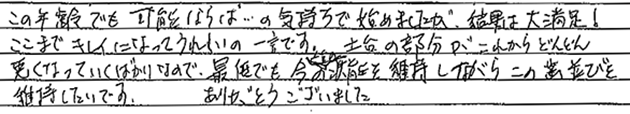 この年齢でも可能ならば…の気持ちで始めましたが、結果は大満足！
ここまでキレイになってうれしいの一言です。土台の部分がこれからどんどん
悪くなっていくばかりなので、最低でも今の状態を維持しながらこの歯並びを
維持したいです。ありがとうございました